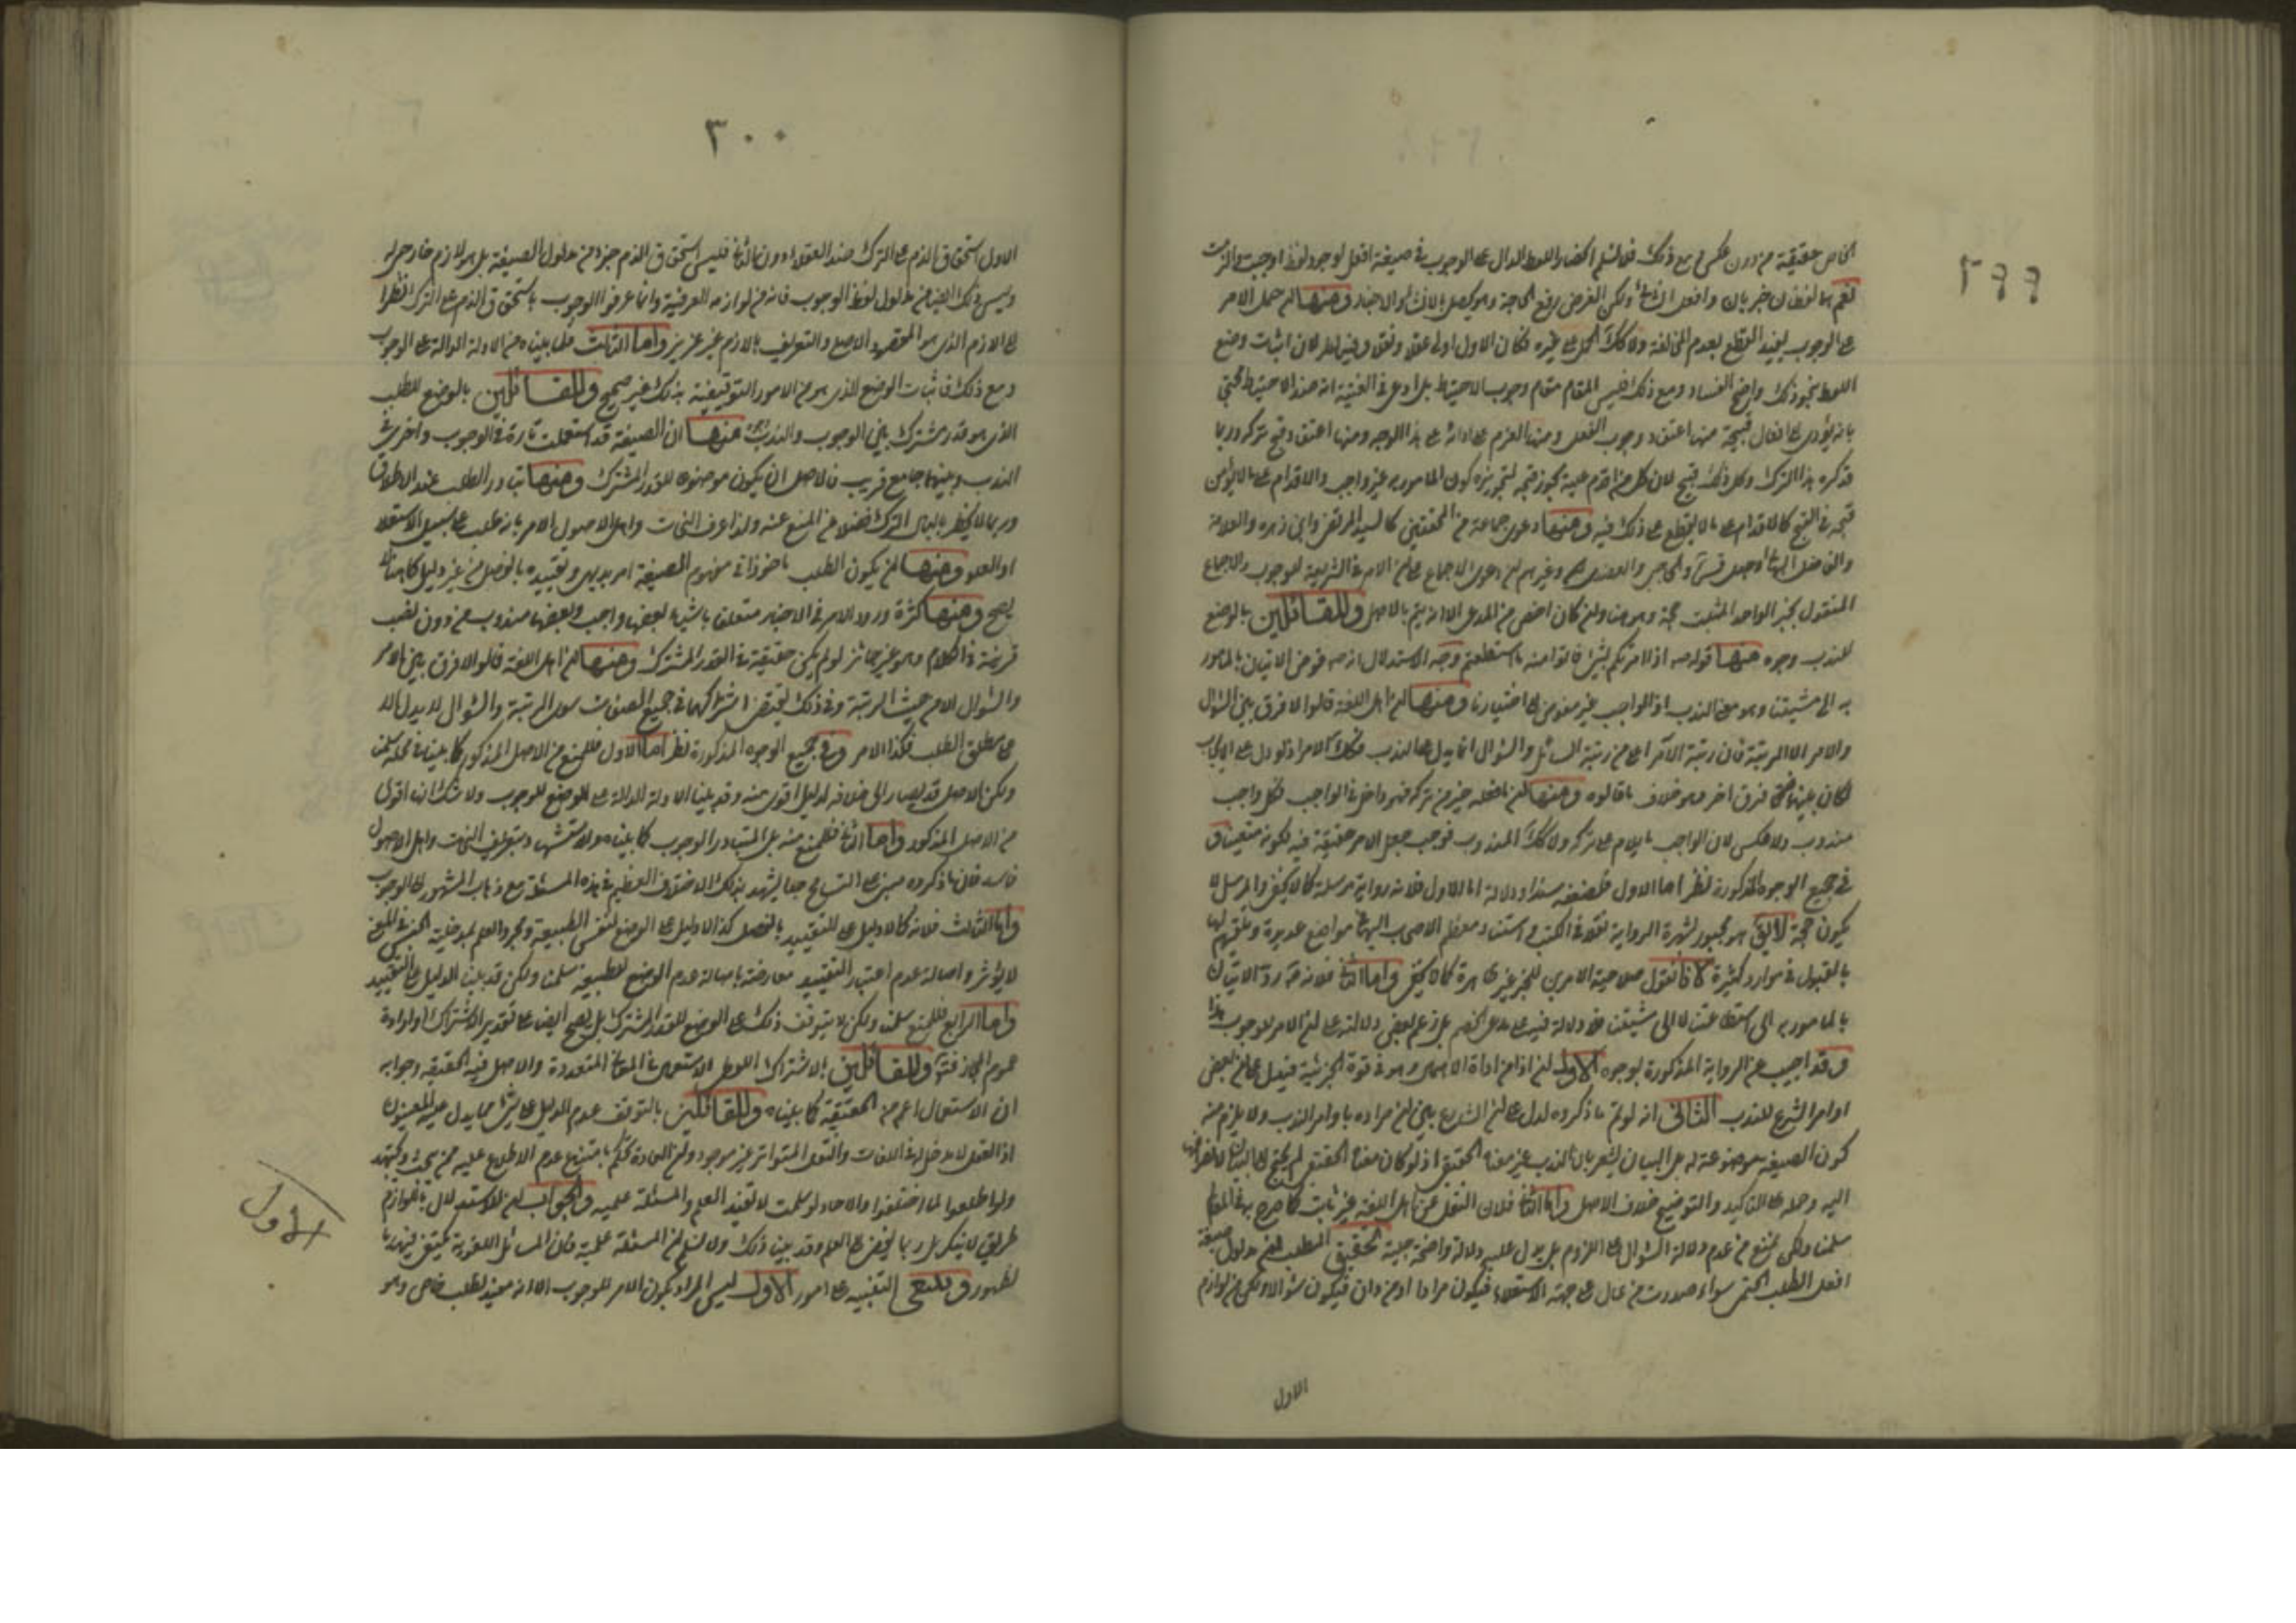 ٢٩٩
الخاص حقيقة من دون عكس ومع ذلك فلا نسلم انحصار اللفظ الدال على الوجوب في صيغة افعل لوجود لفظ اوجبت والزمت
نعم هما لفظان خبريان وافعل انشاء ولكن الغرض رفع الحاجة وهو يحصل بالانشاء والاخبار ومنها ان حمل الامر
على الوجوب يفيد القطع بعدم المخالفة ولا كذلك الحمل على غيره فكان الاول اولى عقلا ونقلا وفيه نظر لان اثبات وضع
اللفظ بنحو ذلك واضح الفساد ومع ذلك فليس المقام مقام وجوب الاحتياط بل ادعى في الغنية انه ضد الاحتياط محتجا
بانه يؤدي الى افعال قبيحة منها اعتقاد وجوب الفعل ومنها العزم على ادائه على هذا الوجه ومنها اعتقاد قبح تركه وربما
قد كره هذا الترك وكل ذلك قبيح لان كل من اقدم عليه يجوز قبحه لتجويزه كون المامور به غير واجب والاقدام على ما لا يؤمن
قبحه في القبح كالاقدام على ما لا يقطع على ذلك فيه ومنها دعوى جماعة من المحققين كالسيد المرتضى وابن زهره والعلامة
والفاضل البهائي وصاحب والحاجبي والعضدي وغيرهم من دعوى الاجماع على ان الامر في الشريعة للوجوب والاجماع
المنقول بخبر الواحد المثبت حجة وهو هنا وان كان اخص من المدعى الا انه يتم بالاصل وللقائلين بالوضع
للندب وجوه منها قوله ص اذا امرتكم بشئ فاتوا منه ما استطعتم وجه الاستدلال انه ص فوض الاتيان بالمامور
به الى مشيتنا وهو معنى الندب اذ الواجب غير مفوض الى اختيارنا ومنها ان اهل اللغة قالوا لا فرق بين السؤال
والامر الا الرتبة فان رتبة الآمر اعلى من رتبة السائل والسؤال انما يدل على الندب فكذلك الامر اذ لو دل على الايجاب
لكان بينهما فرق اخر وهو خلاف ما قالوه ومنها ان ما فعله خير من تركه فهو داخل في الواجب فكل واجب
مندوب ولا عكس لان الواجب ما يلام على تركه ولا كذلك المندوب فوجب جعل الامر حقيقة فيه لكونه متيقنا و
في جميع الوجوه المذكورة نظر اما الاول فلضعفه سندا ودلالة اما الاول فلانه رواية مرسلة كما لا يخفى والمرسل لا
يكون حجة لا يق هو مجبور بشهرة الرواية نقلا في الكتب واستناد معظم الاصحاب اليها في مواضع عديدة وتلقيهم لها
بالقبول في موارد كثيرة لانا نقول صلاحية الامرين للجبر غير ظاهرة كما لا يخفى واما الثاني فلانه ص رد الاتيان
بالمامور به الى استطاعتنا لا الى مشيتنا فلا دلالة فيه على مدعى الخصم بل زعم بعض دلالته على ان الامر للوجوب هذا
وقد اجيب عن الرواية المذكورة بوجوه الاول ان اذا من اداة الاهمال وهو في قوة الجزئية فيدل على ان بعض
اوامر الشرع للندب الثاني انه لو تم ما ذكروه لدل على ان الشرع بين ان مراده باوامر الندب ولا يلزم منه
كون الصيغة موضوعة له بل البيان يشعر بان الندب غير معناه الحقيقي اذ لو كان معناه الحقيقي لم يحتج الى البيان
اليه وحمله على التاكيد والتوضيح خلاف الاصل واما الثاني فلان النقل عن اهل اللغة غير ثابت كما صرح به في المعالم
سلمنا ولكن نمنع من عدم دلالة السؤال على اللزوم بل يدل عليه دلالة واضحة جلية تحقيق المطلب ان مدلول صيغة
افعل الطلب الحتمي سواء صدرت من عال على جهة الاستعلاء فيكون مراما او من دان فيكون سؤالا ولكن من لوازم
الاول
٣٠٠
الاول استحقاق الذم على الترك عند العقلاء دون الثاني فليس استحقاق الذم جزء من مدلول الصيغة بل هو لازم خارجي له
وليس ذلك ايضا من مدلول لفظ الوجوب فانه من لوازمه العرفية وانما عرفوا الوجوب باستحقاق الذم على الترك نظرا
على اللازم الذي هو المقصود الاصلي والتعريف باللازم غير عزيز واما الثالث فلما بيناه من الادلة الدالة على الوجوب
ومع ذلك فاثبات الوضع الذي هو من الامور التوقيفية بذلك غير صحيح وللقائلين بالوضع للطلب
الذي هو قدر مشترك بين الوجوب والندب منها ان الصيغة قد استعملت تارة في الوجوب واخرى في
الندب وبينهما جامع قريب فالاصل ان يكون موضوعا للقدر المشترك ومنها تبادر الطلب عند الاطلاق
وربما لا يخطر بالبال الترك فضلا عن المنع عنه ولذا عرف النحات واهل الاصول الامر بانه طلب على سبيل الاستعلاء
او العلو ومنها ان يكون الطلب ماخوذا في مفهوم الصيغة امر بديهي وتقييده بالفصل من غير دليل
يصح ومنها كثرة ورود الامر في الاخبار متعلقا باشياء بعضها واجب وبعضها مندوب من دون نصب
قرينة في الكلام وهو غير جائز لو لم يكن حقيقة في القدر المشترك ومنها ان اهل اللغة قالوا لا فرق بين الامر
والسؤال الا من حيث الرتبة وفي ذلك يقتضي اشتراكهما في جميع الصفات سوى الرتبة والسؤال لا يدل الا
على مطلق الطلب فكذا الامر وفي جميع الوجوه المذكورة نظر اما الاول فللمنع من الاصل المذكور كما بيناه في محله سلمنا
ولكن الاصل قد يصار الى خلافه لدليل اقوى منه وقد بينا الادلة الدالة على الوضع للوجوب ولا شك انه اقوى
من الاصل المذكور واما الثاني فللمنع منه بل المتبادر الوجوب كما بيناه والاستشهاد بتعريف النحات واهل الاصول
فاسد فان ما ذكروه مبني على التسامح جدا يشهد بذلك الاختلاف العظيم في هذه المسئلة مع ذهاب المشهور الى الوجوب
واما الثالث فلانه كما لا دليل على التقييد بالفصل كذا لا دليل على الوضع لنفس الطبيعة ومجرد العلم بمدخلية الجنس في المعنى
لا يؤثر واصالة عدم اعتبار التقييد معارضة باصالة عدم الوضع للطبيعة سلمنا ولكن قد بينا الدليل على التقييد
واما الرابع فللمنع سلمنا ولكن لا يتوقف ذلك على الوضع للقدر المشترك بل يصح ايضا على تقدير الاشتراك او ارادة
عموم المجاز فتأمل وللقائلين بالاشتراك اللفظي الاستعمال في المعاني المتعددة والاصل فيه الحقيقة وجوابه
ان الاستعمال اعم من الحقيقة كما بيناه وللقائلين بالتوقف عدم الدليل على شئ مما يدل عليه المعينون
اذ العقل لا مدخل له في اللغات والنقل المتواتر غير موجود وان العادة تحكم بامتناع عدم الاطلاع عليه ممن يبحث ويجتهد
ولو اطلعوا لما اختلفوا والاحاد لو سلمت لا تفيد العلم والمسئلة علمية والجواب ان الاستدلال باللوازم
طريق لا ينكر بل ربما يفضي الى العلم وقد بينا ذلك ولا نسلم ان المسئلة علمية فان المسائل اللغوية يكتفى فيها
لظهور وينبغي التنبيه على امور الاول ليس المراد بكون الامر للوجوب الا انه مفيد لطلب خاص وهو
الاول